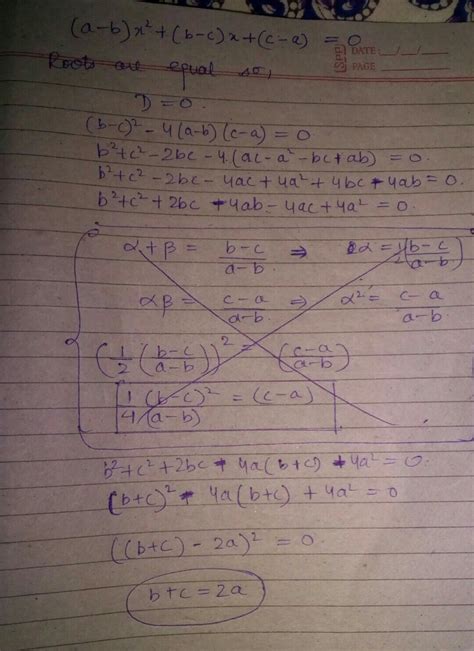 (a-b)x² + (b-c)x + (c-a) = 0
SPP DATE: __/__/__
PAGE
Roots are equal so,
D = 0.
(b-c)² - 4(a-b)(c-a) = 0
b²+c² - 2bc - 4(ac-a²-bc+ab) = 0.
b²+c² - 2bc - 4ac + 4a² + 4bc - 4ab = 0.
b²+c² + 2bc - 4ab - 4ac + 4a² = 0.
α + β = (b-c)/(a-b) ⇒ α = 1/2 (b-c)/(a-b)
αβ = (c-a)/(a-b) ⇒ α² = (c-a)/(a-b)
(1/2 ((b-c)/(a-b)))² = ((c-a)/(a-b))
1/4 (b-c)²/(a-b) = (c-a)
b²+c²+2bc - 4a(b+c) + 4a² = 0.
(b+c)² - 4a(b+c) + 4a² = 0
((b+c) - 2a)² = 0.
b+c = 2a